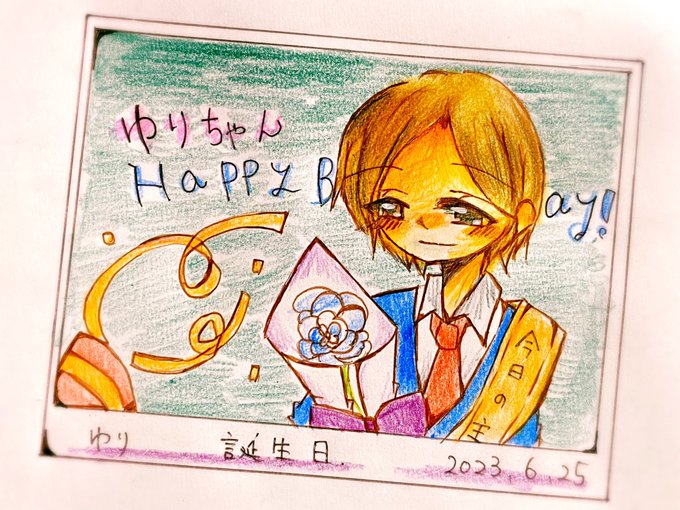 ゆりちゃん
Happy B ay!
今日の主
ゆり 誕生日. 2023. 6. 25